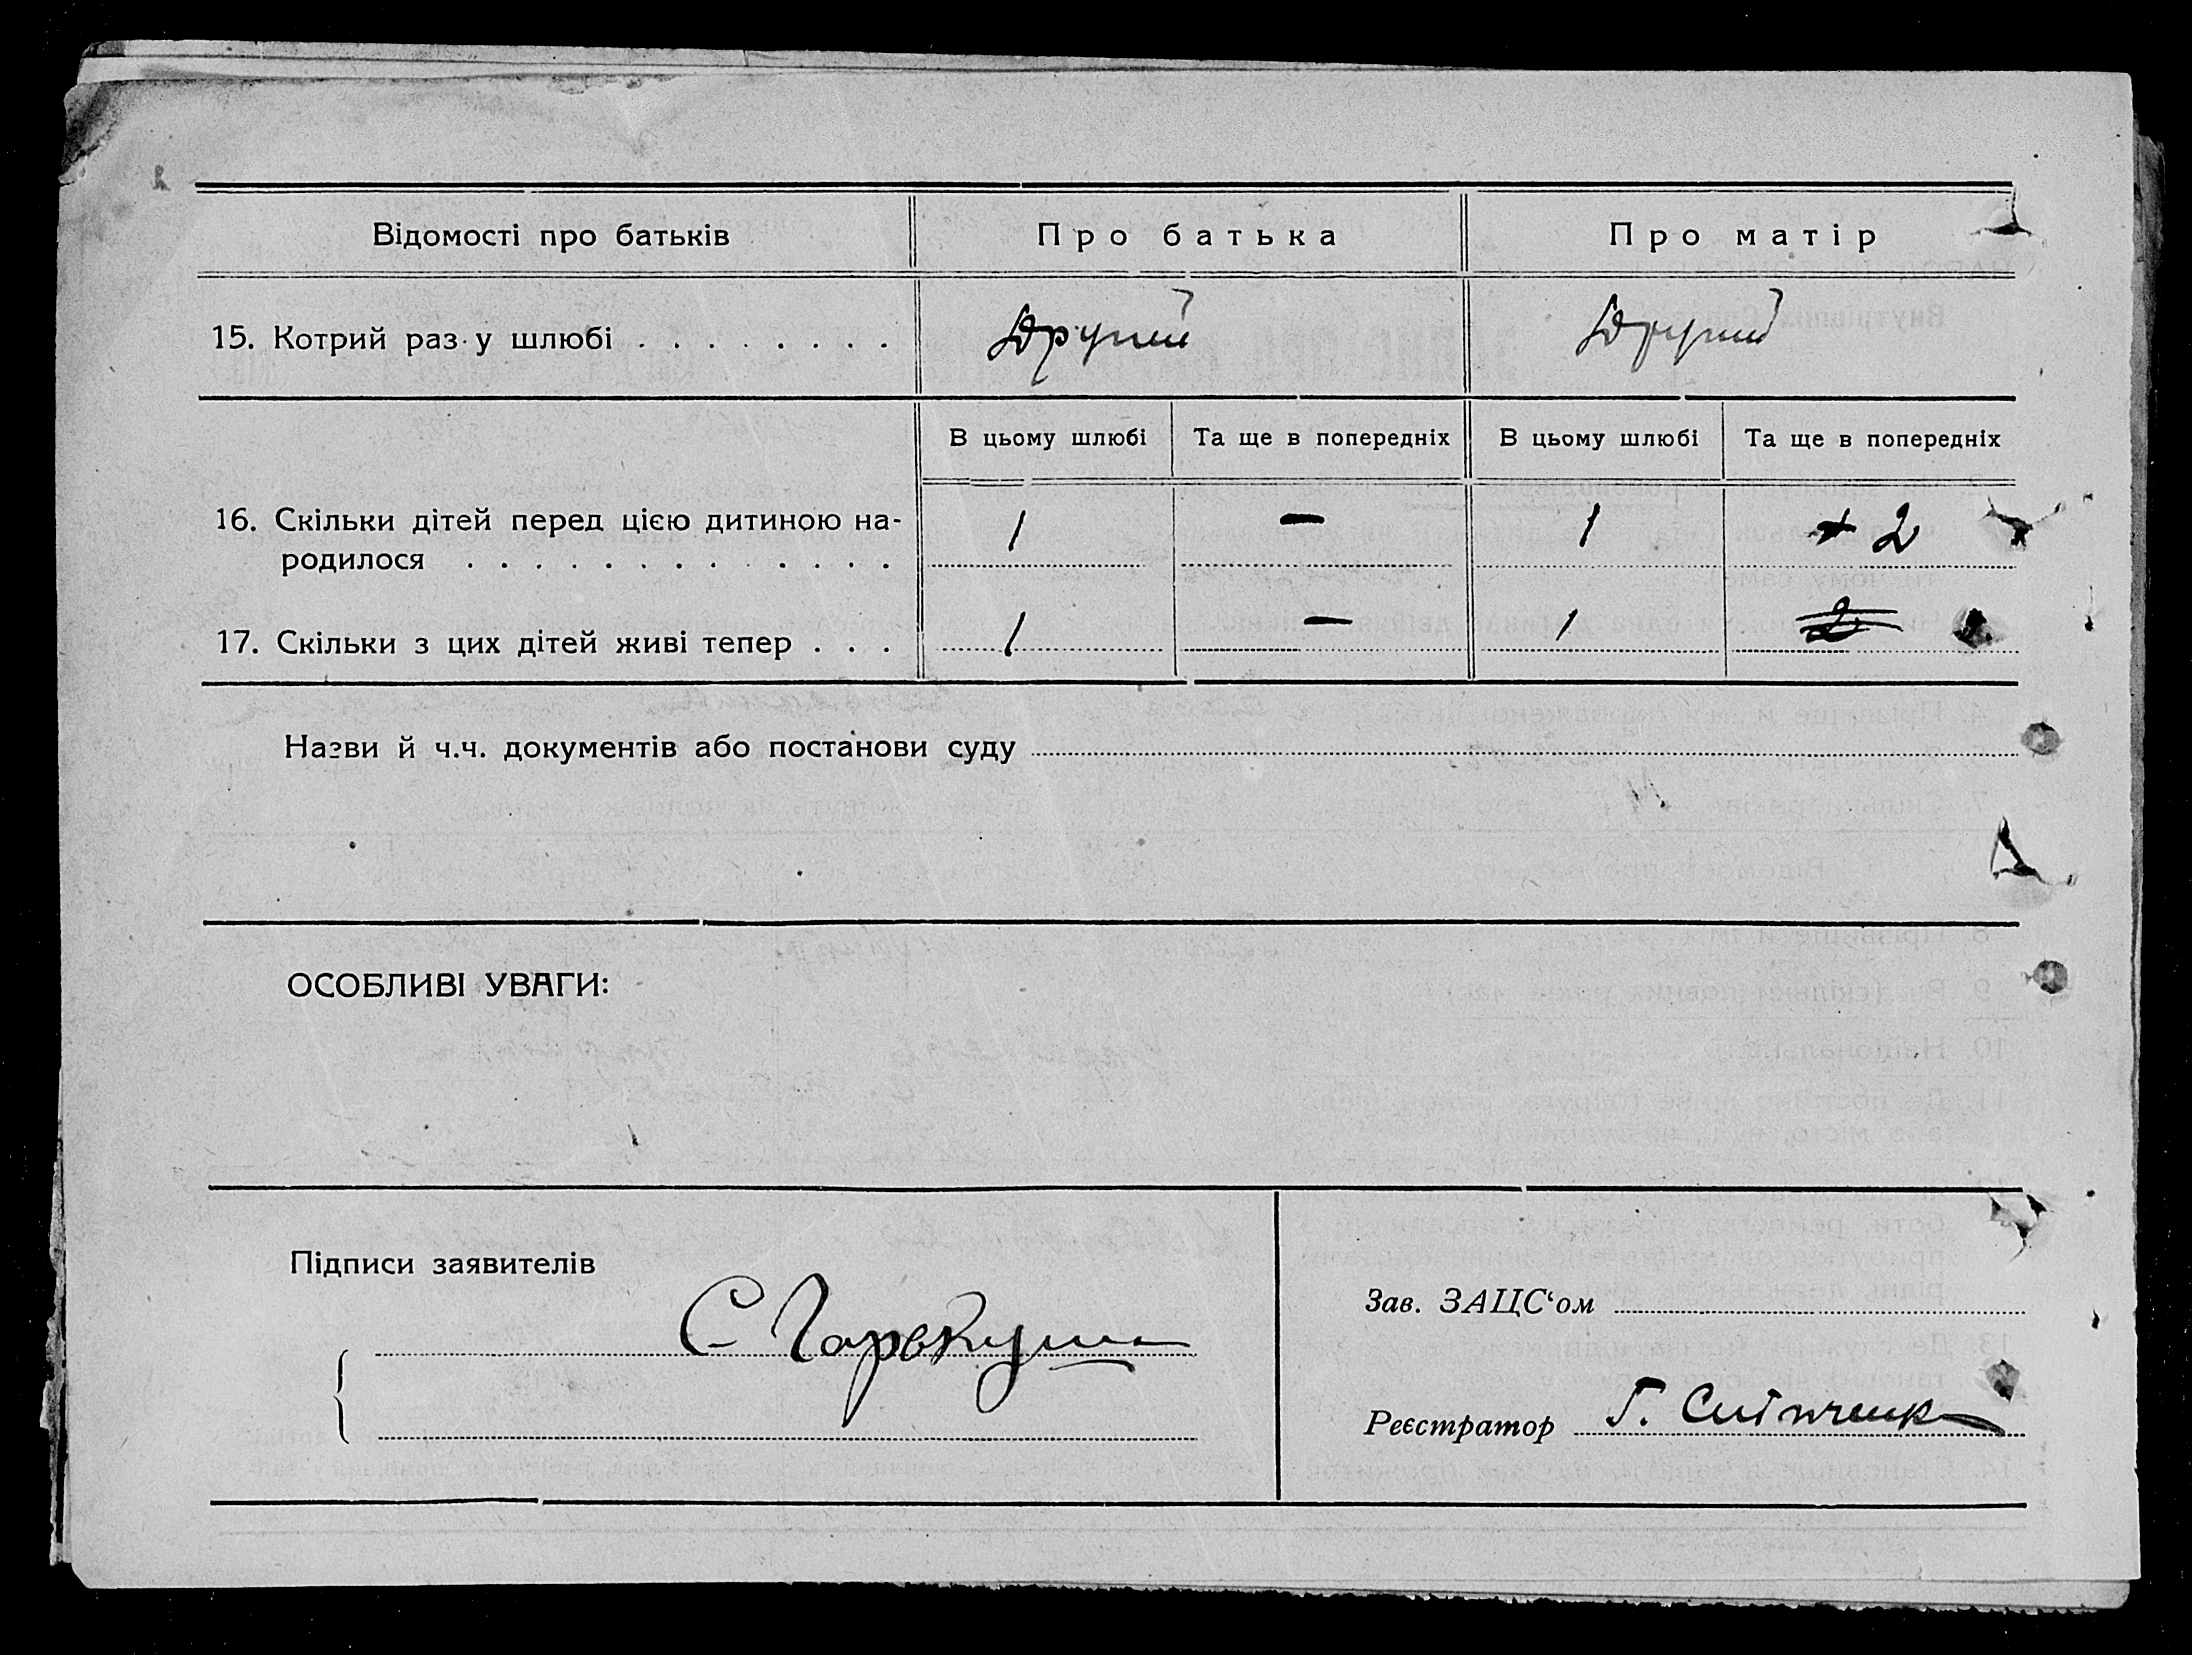 Відомості про батьків Про батька Про матір
15. Котрий раз у шлюбі . . . . . . . . Другий Другий
В цьому шлюбі Та ще в попередніх В цьому шлюбі Та ще в попередніх
16. Скільки дітей перед цією дитиною на-
родилося . . . . . . . . . . . . . 1 — 1 2
17. Скільки з цих дітей живі тепер . . . 1 — 1 2
Назви й ч.ч. документів або постанови суду
ОСОБЛИВІ УВАГИ:
Підписи заявителів
Зав. ЗАЦС‘ом
С Горвкуша
Реєстратор Г.